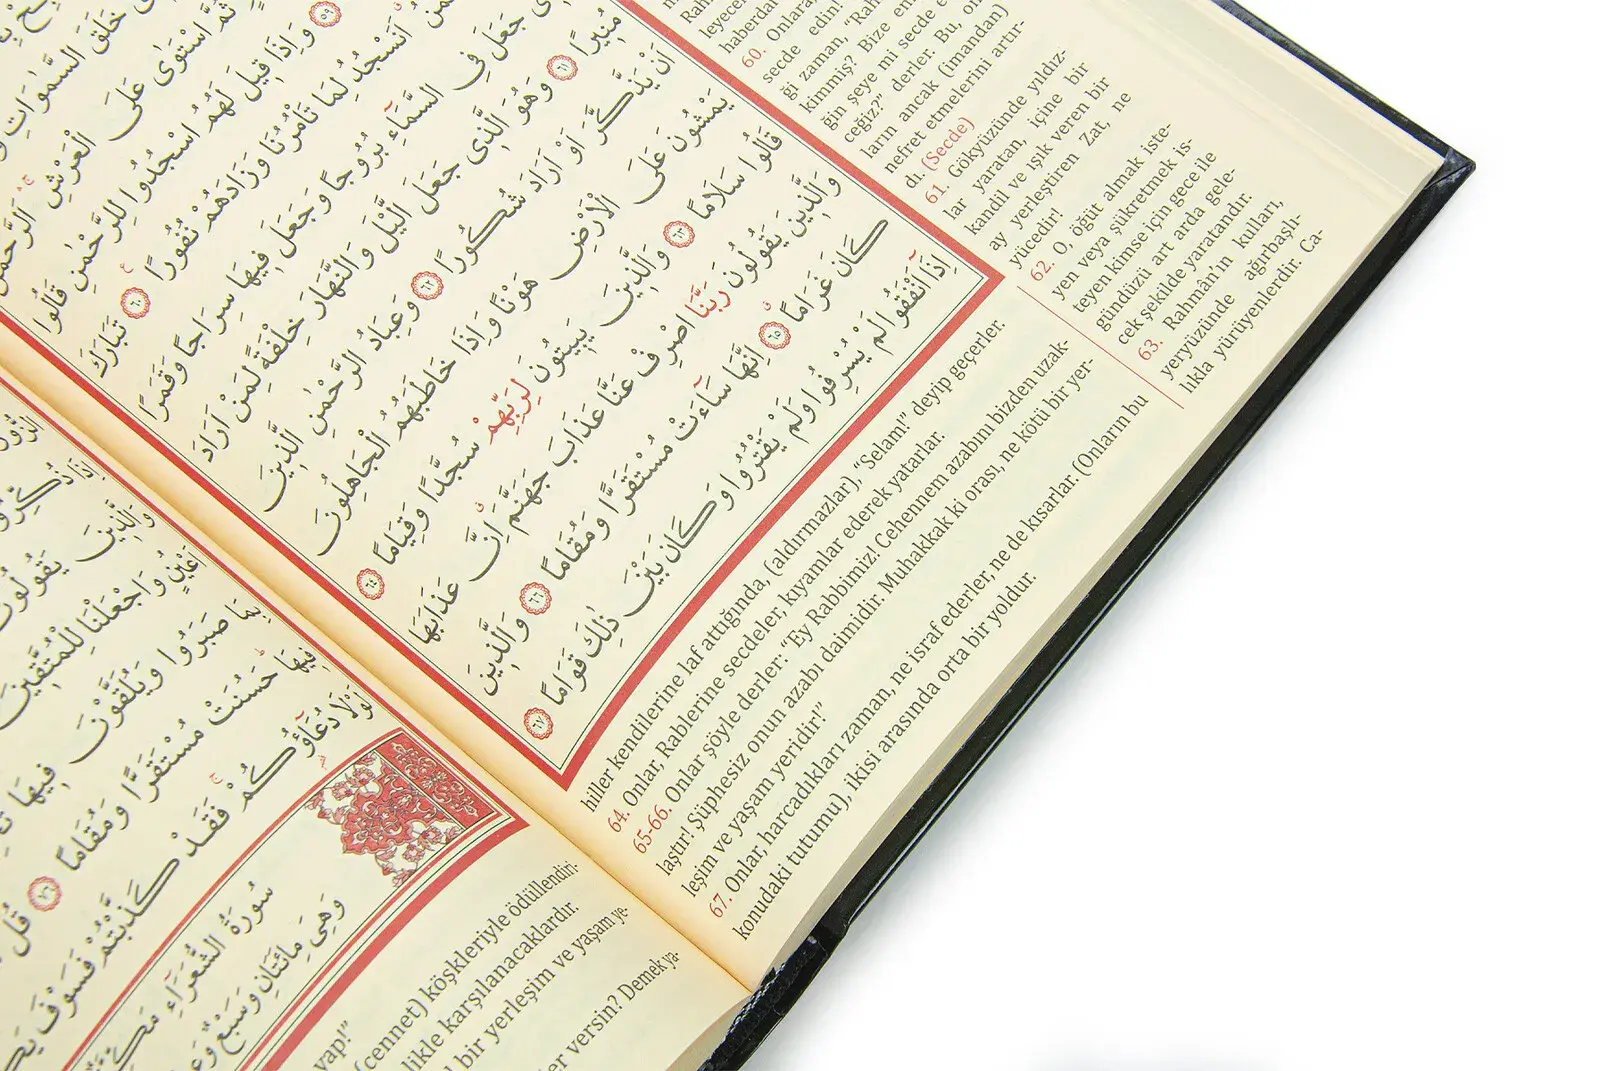 خَلَقَ السَّمٰوَاتِ
ثُمَّ اسْتَوٰى عَلَى الْعَرْشِ اَلرَّحْمٰنُ
﴿٥٩﴾ وَاِذَا قِيلَ لَهُمُ اسْجُدُوا لِلرَّحْمٰنِ قَالُوا
اَنَسْجُدُ لِمَا تَأْمُرُنَا وَزَادَهُمْ نُفُورًا ﴿٦٠﴾ تَبَارَكَ
جَعَلَ فِي السَّمَٓاءِ بُرُوجًا وَجَعَلَ فِيهَا سِرَاجًا وَقَمَرًا
مُنِيرًا ﴿٦١﴾ وَهُوَ الَّذِي جَعَلَ الَّيْلَ وَالنَّهَارَ خِلْفَةً لِمَنْ اَرَادَ
اَنْ يَذَّكَّرَ اَوْ اَرَادَ شُكُورًا ﴿٦٢﴾ وَعِبَادُ الرَّحْمٰنِ الَّذِينَ
يَمْشُونَ عَلَى الْاَرْضِ هَوْنًا وَاِذَا خَاطَبَهُمُ الْجَاهِلُونَ
قَالُوا سَلَامًا ﴿٦٣﴾ وَالَّذِينَ يَبِيتُونَ لِرَبِّهِمْ سُجَّدًا وَقِيَامًا ﴿٦٤﴾
وَالَّذِينَ يَقُولُونَ رَبَّنَا اصْرِفْ عَنَّا عَذَابَ جَهَنَّمَ اِنَّ عَذَابَهَا
كَانَ غَرَامًا ﴿٦٥﴾ اِنَّهَا سَٓاءَتْ مُسْتَقَرًّا وَمُقَامًا ﴿٦٦﴾ وَالَّذِينَ
اِذَٓا اَنْفَقُوا لَمْ يُسْرِفُوا وَلَمْ يَقْتُرُوا وَكَانَ بَيْنَ ذٰلِكَ قَوَامًا ﴿٦٧﴾
haberdar
60. Onlara
secde edin!
ği zaman, “Rah
kimmiş? Bize em
ğin şeye mi secde e
ceğiz?” derler. Bu, on
ların ancak (imandan)
nefret etmelerini artır-
dı. (Secde)
61. Gökyüzünde yıldız-
lar yaratan, içine bir
kandil ve ışık veren bir
ay yerleştiren Zat, ne
yücedir!
62. O, öğüt almak iste-
yen veya şükretmek is-
teyen kimse için gece ile
gündüzü art arda gele-
cek şekilde yaratandır.
63. Rahmân’ın kulları,
yeryüzünde ağırbaşlı-
lıkla yürüyenlerdir. Ca-
hiller kendilerine laf attığında, (aldırmazlar), “Selam!” deyip geçerler.
64. Onlar, Rablerine secdeler, kıyamlar ederek yatarlar.
65-66. Onlar şöyle derler: “Ey Rabbimiz! Cehennem azabını bizden uzak-
laştır! Şüphesiz onun azabı daimidir. Muhakkak ki orası, ne kötü bir yer-
leşim ve yaşam yeridir!”
67. Onlar, harcadıkları zaman, ne israf ederler, ne de kısarlar. (Onların bu
konudaki tutumu), ikisi arasında orta bir yoldur.
وَالَّذِينَ يَقُولُونَ
اَعْيُنٍ وَاجْعَلْنَا لِلْمُتَّقِينَ
بِمَا صَبَرُوا وَيُلَقَّوْنَ فِيهَا
فِيهَا حَسُنَتْ مُسْتَقَرًّا وَمُقَامًا ﴿٧٦﴾ قُلْ
لَوْلَا دُعَٓاؤُ۬كُمْ فَقَدْ كَذَّبْتُمْ فَسَوْفَ
سُورَةُ الشُّعَرَٓاءِ
وَهِيَ مِائَتَانِ وَسَبْعٌ
yap!”
(cennet) köşkleriyle ödüllendiri-
likle karşılanacaklardır.
bir yerleşim ve yaşam ye-
er versin? Demek ya-